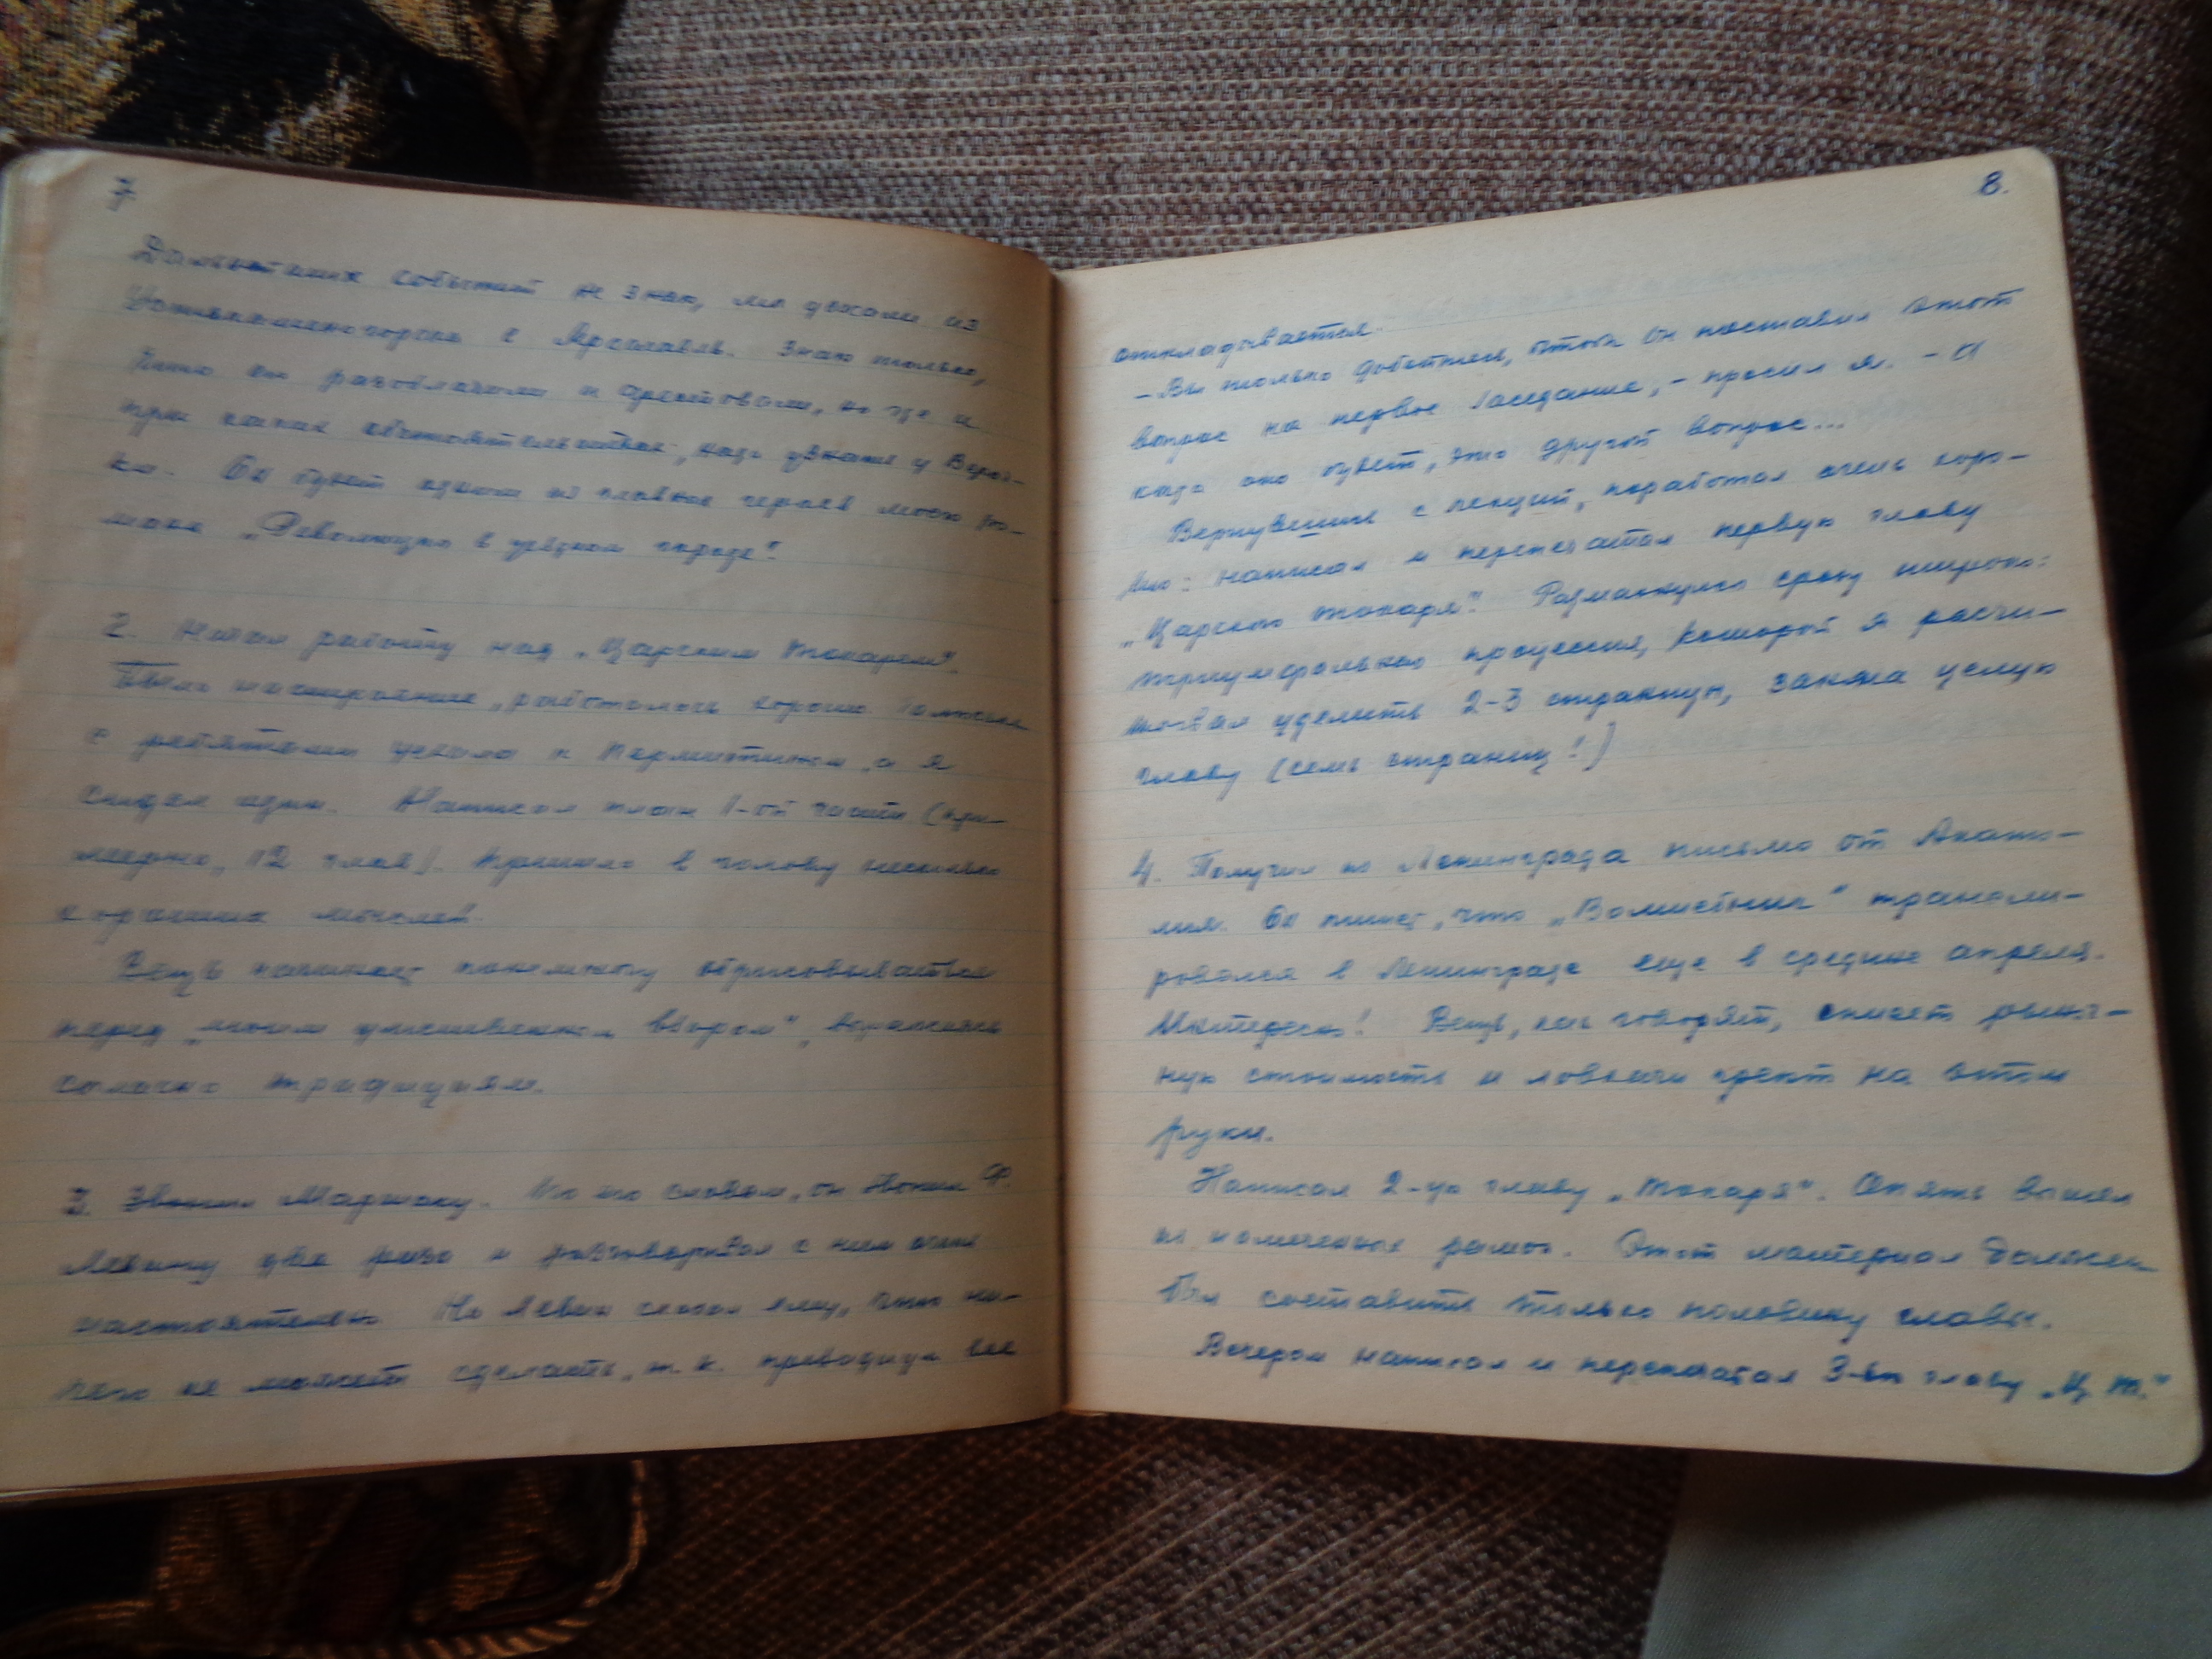 7
Дальнейших событий не знаю, мы уехали из
Устькаменогорска в Ярославль. Знаю только,
что он разоблачили и арестовали, но где и
при каких обстоятельствах, надо узнать у
ка. Он будет одним из главных героев моего ро-
мана „Революция в уездном городе".
2. Начал работу над „Царским токарем".
Было настроение, работалось хорошо. Галюська
с ребятами уехала к а я
сидел один. Написал план 1-ой части (при-
мерно, 12 глав). Пришло в голову несколько
хороших мыслей.
Вещь начинает понемногу обрисовываться
перед „моим умственным взором", выражаясь
согласно традициям.
3. Звонил Маршаку. По его словам, он звонил Ф.
Левину два раза и разговаривал с ним очень
настоятельно. Но Левин сказал ему, что ни-
чего не может сделать, т. к. президиум все
8.
откладывается.
– Вы только добейтесь, чтобы он поставил этот
вопрос на первое заседание, – просил я. – А
когда оно будет, это другой вопрос...
Вернувшись с лекций, поработал очень хоро-
шо: написал и перепечатал первую главу
„Царского токаря". Размахнулся сразу широко:
триумфальная процессия, которой я рассчи-
тывал уделить 2-3 страницы, заняла целую
главу (семь страниц!)
4. Получил из Ленинграда письмо от Акати-
мия. Он пишет, что „Волшебник" транслиро-
ровался в Ленинграде еще в средине апреля.
Интересно! Вещь, как говорят, имеет
ную стоимость и ловкачи греют на этом
руки.
Написал 2-ую главу „Токаря". Опять вышел
из намеченных рамок. Этот материал должен
был составить только половину главы.
Вечером написал и перепечатал 3-ью главу „Ц. т."